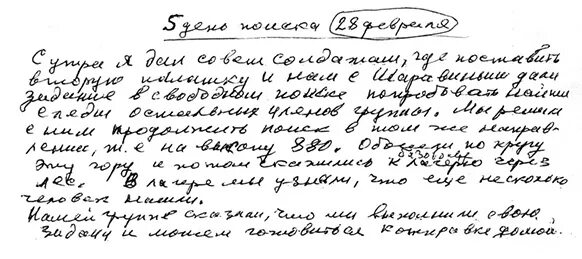 5 день поиска 28 февраля
С утра я дал совет солдатам, где поставить
вторую палатку и нам с Шаравиным дали
задание в свободном поиске попробовать найти
следы остальных членов группы. Мы решили
с ним продолжить поиск в том же направ-
лении, т.е на высоту 880. Обошли, по кругу
эту гору и потом скатились к базовому лагерю через
лес. В лагере мы узнали, что еще несколько
человек нашли.
Нашей группе сказали, что мы выполнили свою
задачу и можем готовиться к отправке домой.